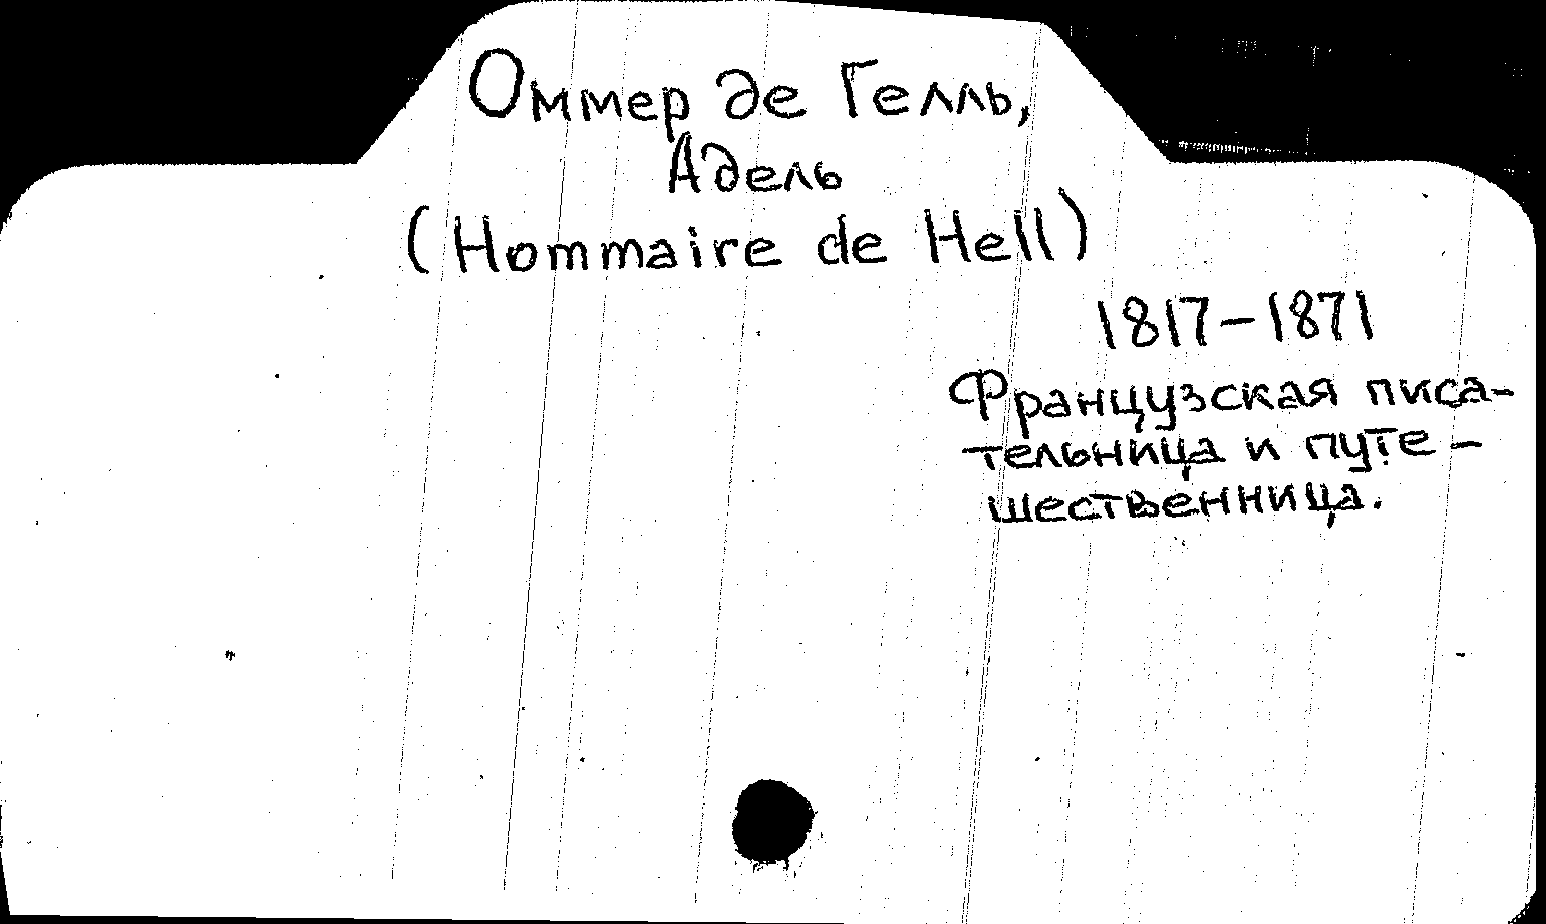 Оммер де Гелль,
Адель
(Hommaire de Hell)
1817-1871
Французская писа-
тельница и путе-
шественница.